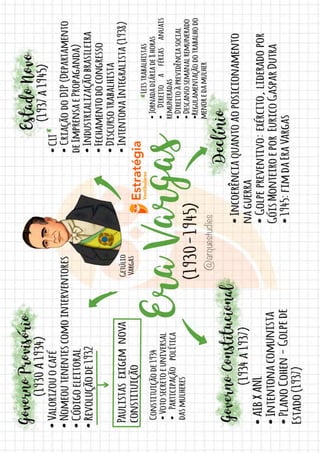 Governo Provisório
(1930 A 1934)
• Valorizou o café
• Nomeou tenentes como interventores
• Código eleitoral
• Revolução de 1932
Paulistas exigem nova
constituição
Constituição de 1934
• Voto secreto e universal
• Participação política
das mulheres
Governo Constitucional
(1934 A 1937)
• AIB x ANL
• Intentona comunista
• Plano Cohen - Golpe de
Estado (1937)
Getúlio
Vargas
Era Vargas
(1930-1945)
@arquestudies
Estratégia
Vestibulares
Estado Novo
(1937 A 1945)
• CLT*
• Criação do DIP (Departamento
de Imprensa e Propaganda)
• Industrialização brasileira
• Fechamento do congresso
• Discurso trabalhista
• Intentona Integralista (1938)
*Leis trabalhistas
• Jornada diária de 8 horas
• Direito a férias anuais
remuneradas
• Direito à previdência social
• Descanso semanal remunerado
• Regulamentação do trabalho do
menor e da mulher
Declínio
• Incoerência quanto ao posicionamento
na guerra
• Golpe preventivo: exército, liderado por
Góis Monteiro e por Eurico Gaspar Dutra
• 1945: fim da Era Vargas